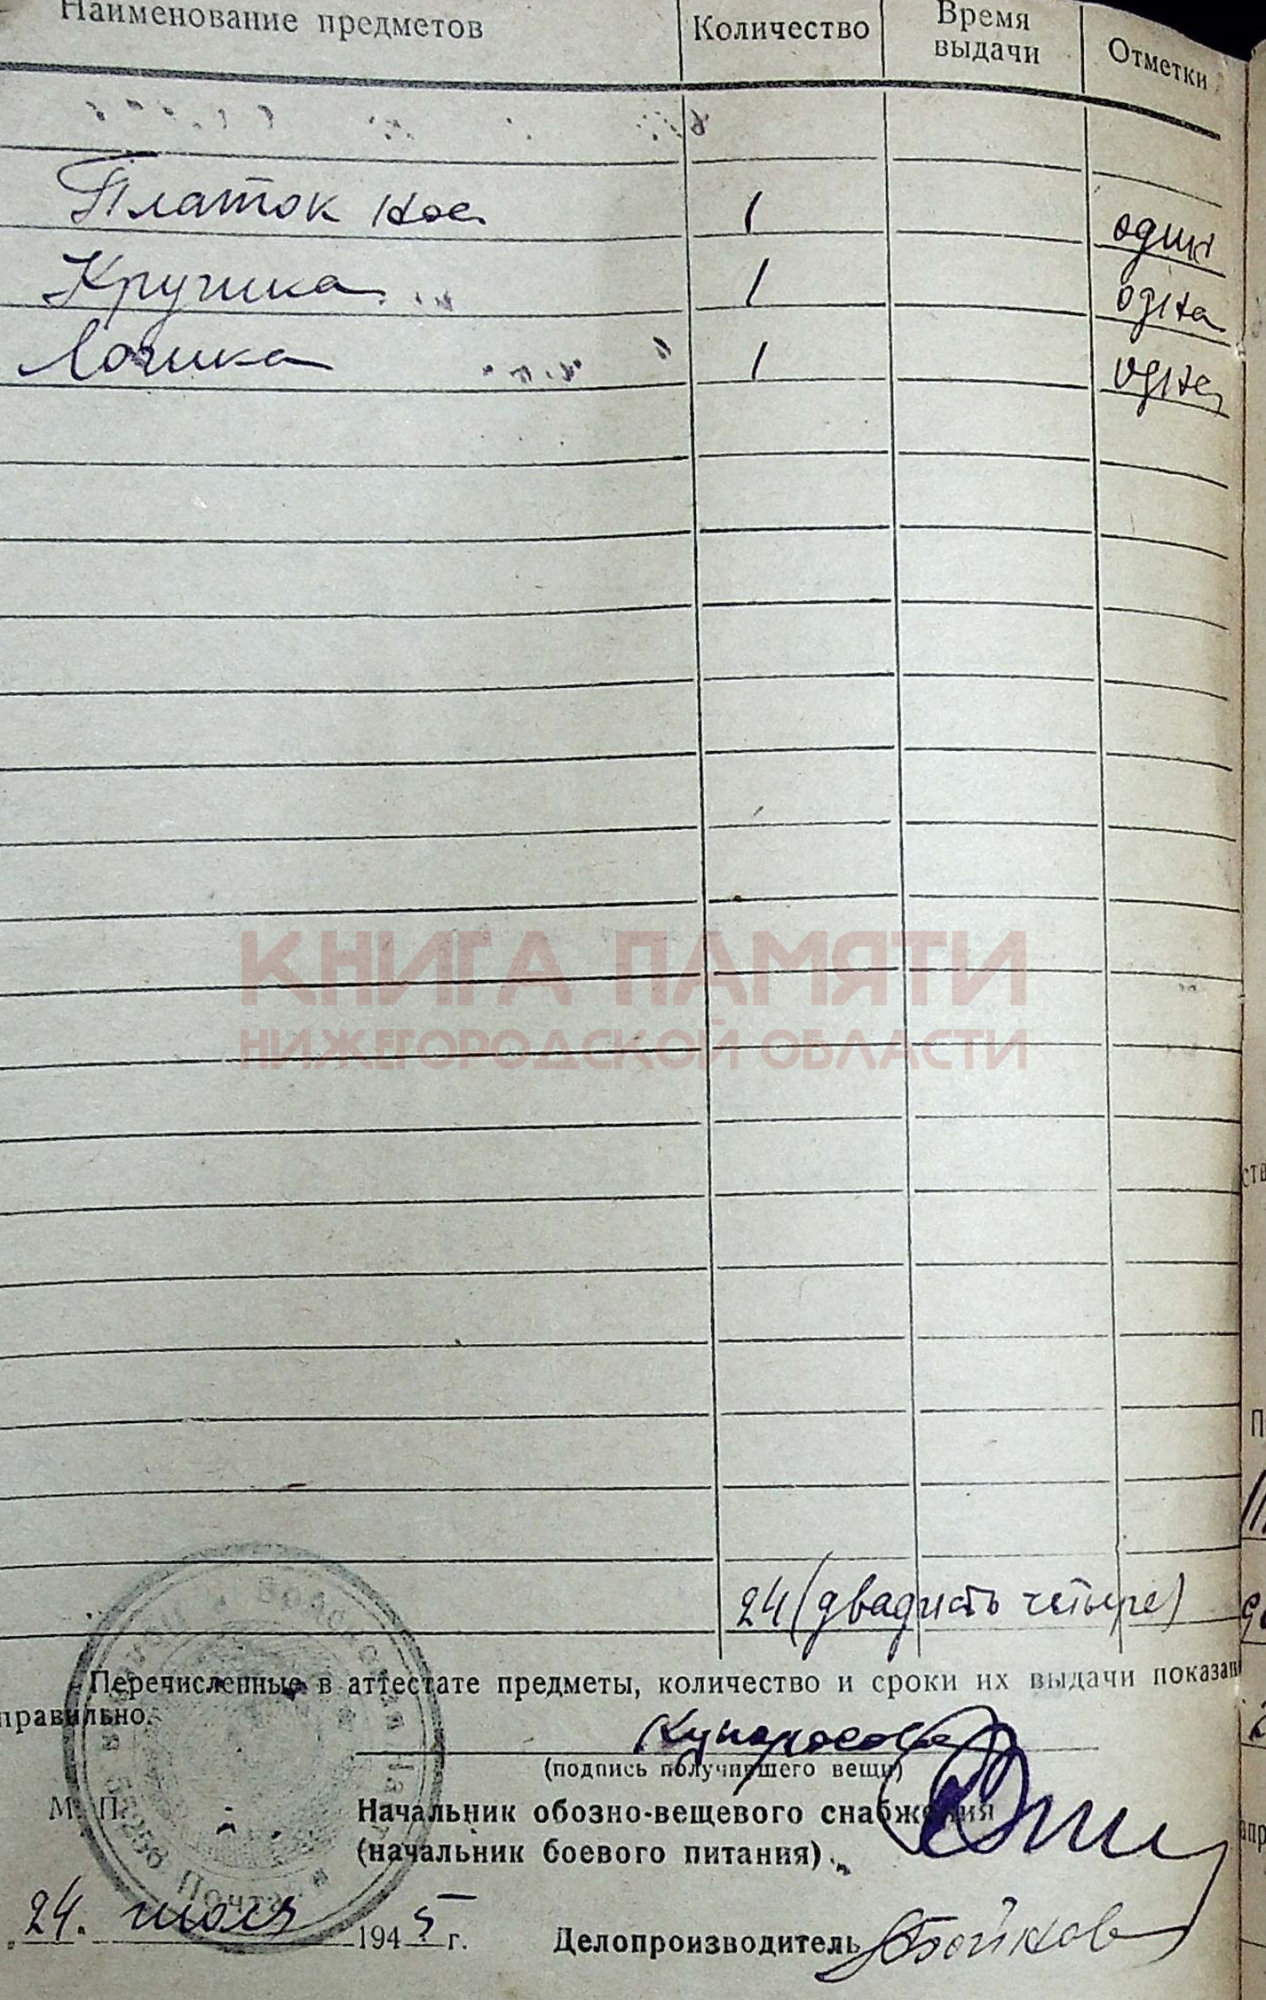 Наименование предметов Количество Время выдачи Отметки
Платок нос. 1 один
Кружка 1 одна
Ложка 1 одна
КНИГА ПАМЯТИ
НИЖЕГОРОДСКОЙ ОБЛАСТИ
24 (двадцать четыре)
Перечисленные в аттестате предметы, количество и сроки их выдачи показаны
правильно.
(подпись получившего вещи)
М. П. Начальник обозно-вещевого снабжения
(начальник боевого питания)
24. июля 1945 г. Делопроизводитель Бойков